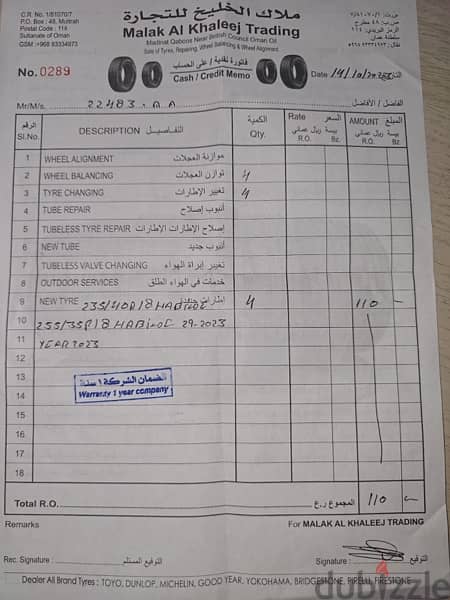 ملاك الخليج للتجارة
Malak Al Khaleej Trading
Madinat Qaboos Near British Council Oman Oil
Sale of Tyres, Repairing, Wheel Balancing & Wheel Alignment
C.R. No. 1/61070/7
P.O. Box: 48, Mutrah
Postal Code : 114
Sultanate of Oman
GSM :+968 93334973
ص.ب: ٤٨ مطرح
الرمز البريدي: ١١٤
سلطنة عمان
No. 0289
فاتورة نقدية / على الحساب
Cash / Credit Memo
Date 14/10/2023 التاريخ
Mr/M/s. 22483 . A A الفاضل / الأفاضل
الرقم Sl.No. DESCRIPTION التفاصيل الكمية Qty. Rate السعر ريال عماني R.O. بيسة Bz. AMOUNT المبلغ ريال عماني R.O. بيسة Bz.
1 WHEEL ALIGNMENT موازنة العجلات
2 WHEEL BALANCING توازن العجلات 4
3 TYRE CHANGING تغيير الإطارات 4
4 TUBE REPAIR أنبوب إصلاح
5 TUBELESS TYRE REPAIR إصلاح الإطارات الإطارات
6 NEW TUBE أنبوب جديد
7 TUBELESS VALVE CHANGING تغيير إبراة الهواء
8 OUTDOOR SERVICES خدمات في الهواء الطلق
9 NEW TYRE 235/40R18 إطارات 4 110 -
10 255/35R18 29-2023
11 YEAR 2023
12
13 الضمان الشركة ١ سنة
14 Warranty 1 year company
15
16
17
18
Total R.O. المجموع ر.ع 110 -
Remarks For MALAK AL KHALEEJ TRADING
Rec. Signature : التوقيع المستلم Signature : التوقيع
Dealer All Brand Tyres : TOYO, DUNLOP, MICHELIN, GOOD YEAR, YOKOHAMA, BRIDGESTONE, PIRELLI, FIRESTONE
dubizzle